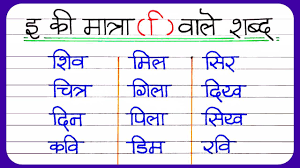 इ की मात्रा (ि) वाले शब्द
शिव मिल सिर
चित्र गिला दिख
दिन पिला सिख
कवि डिम रवि